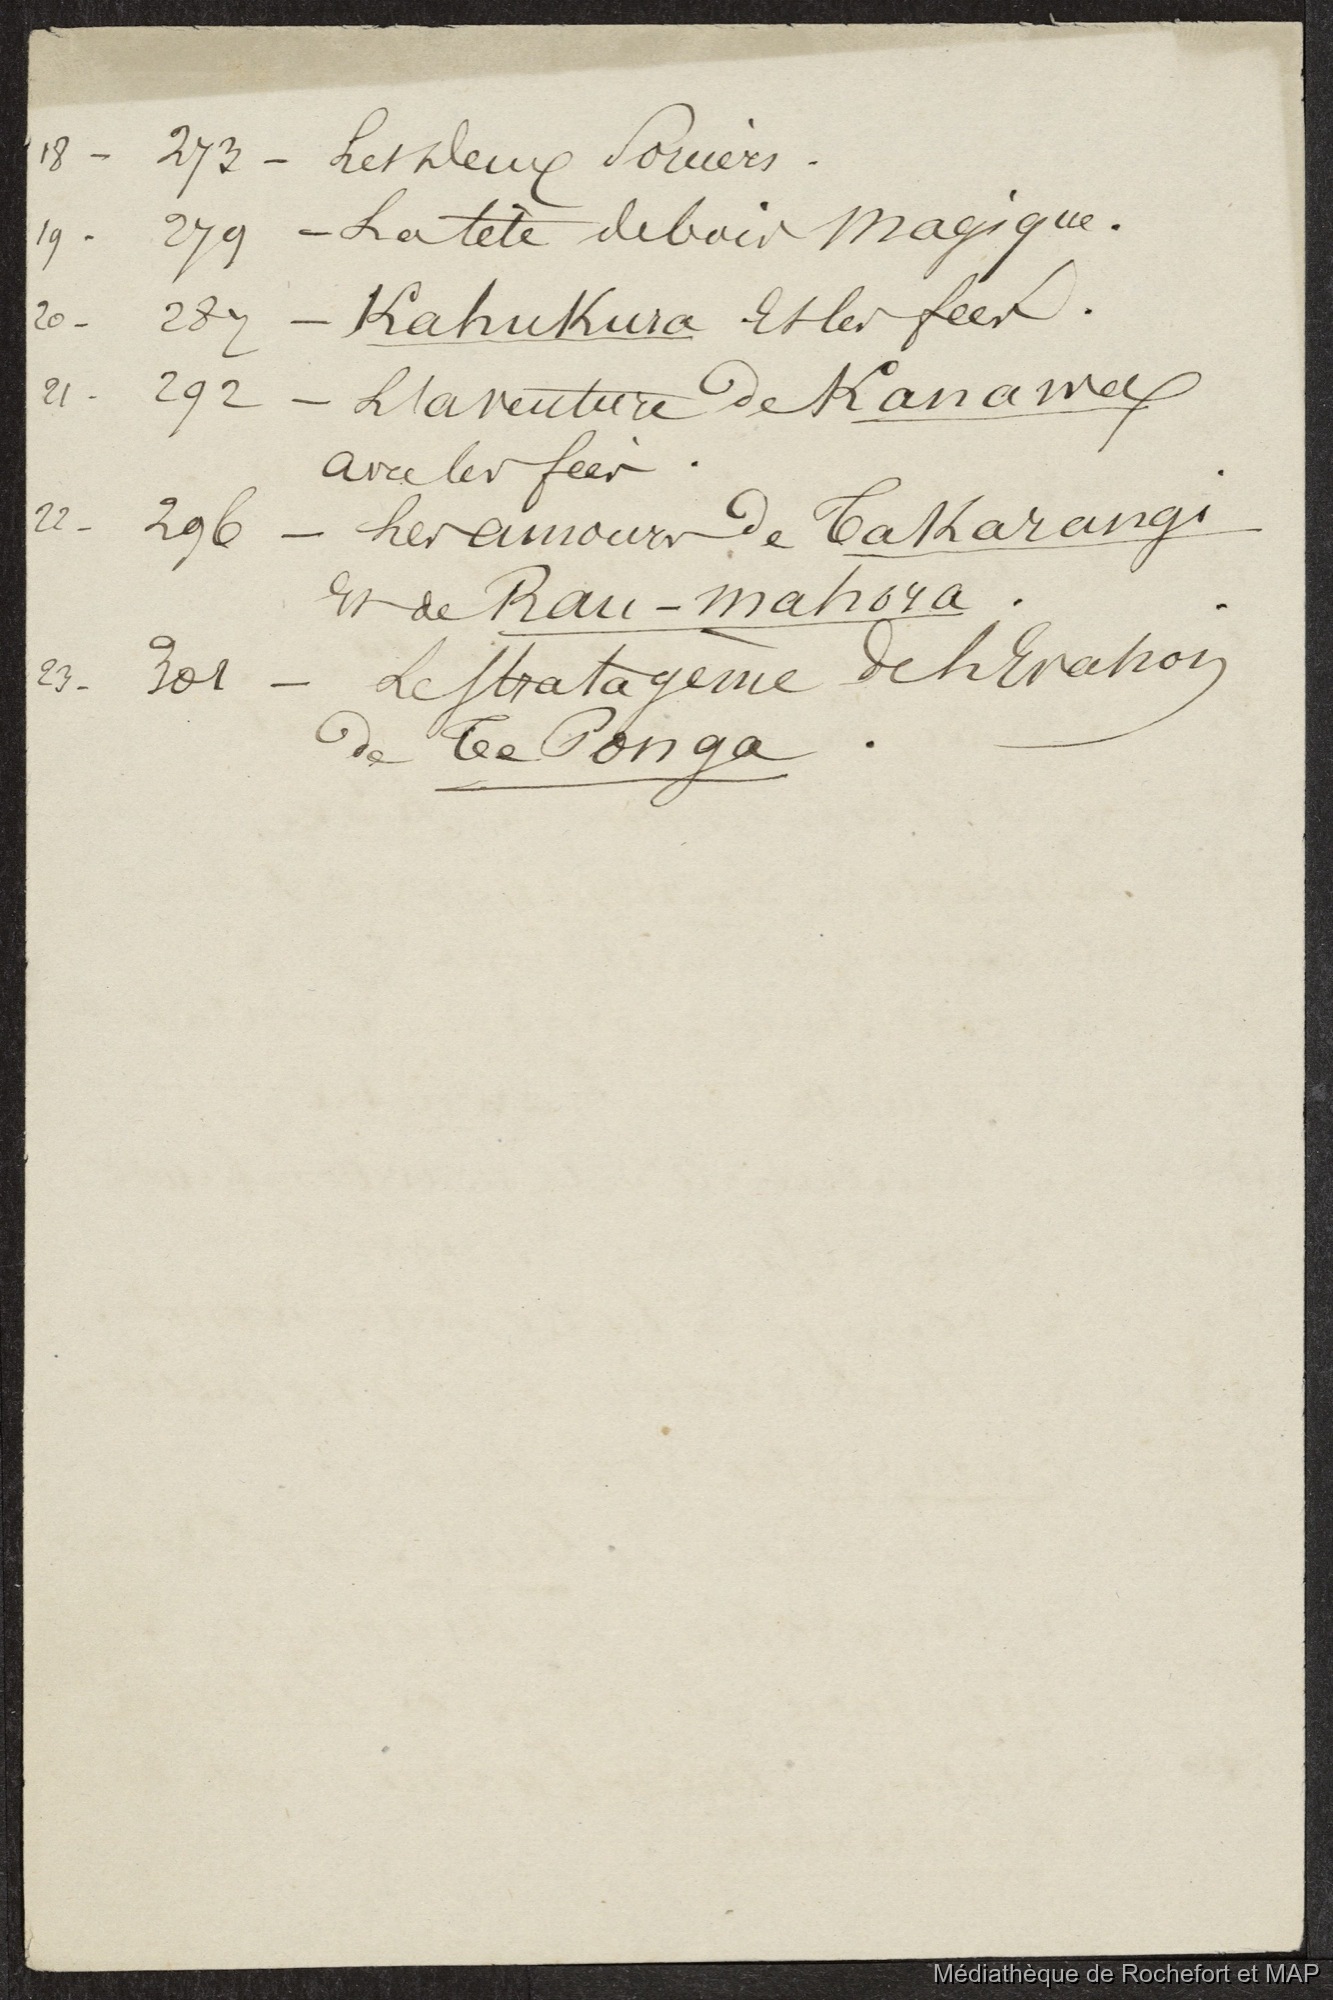 18 - 273 - Les deux Sorciers.
19 - 279 - La tête de bois Magique.
20 - 287 - Kahukura Et les fées.
21 - 292 - L'aventure de Kanawa
avec les fées.
22 - 296 - Les amours de Takarangi
Et de Rau-mahora.
23 - 301 - Le stratagème de
de Te Ponga.
Médiathèque de Rochefort et MAP